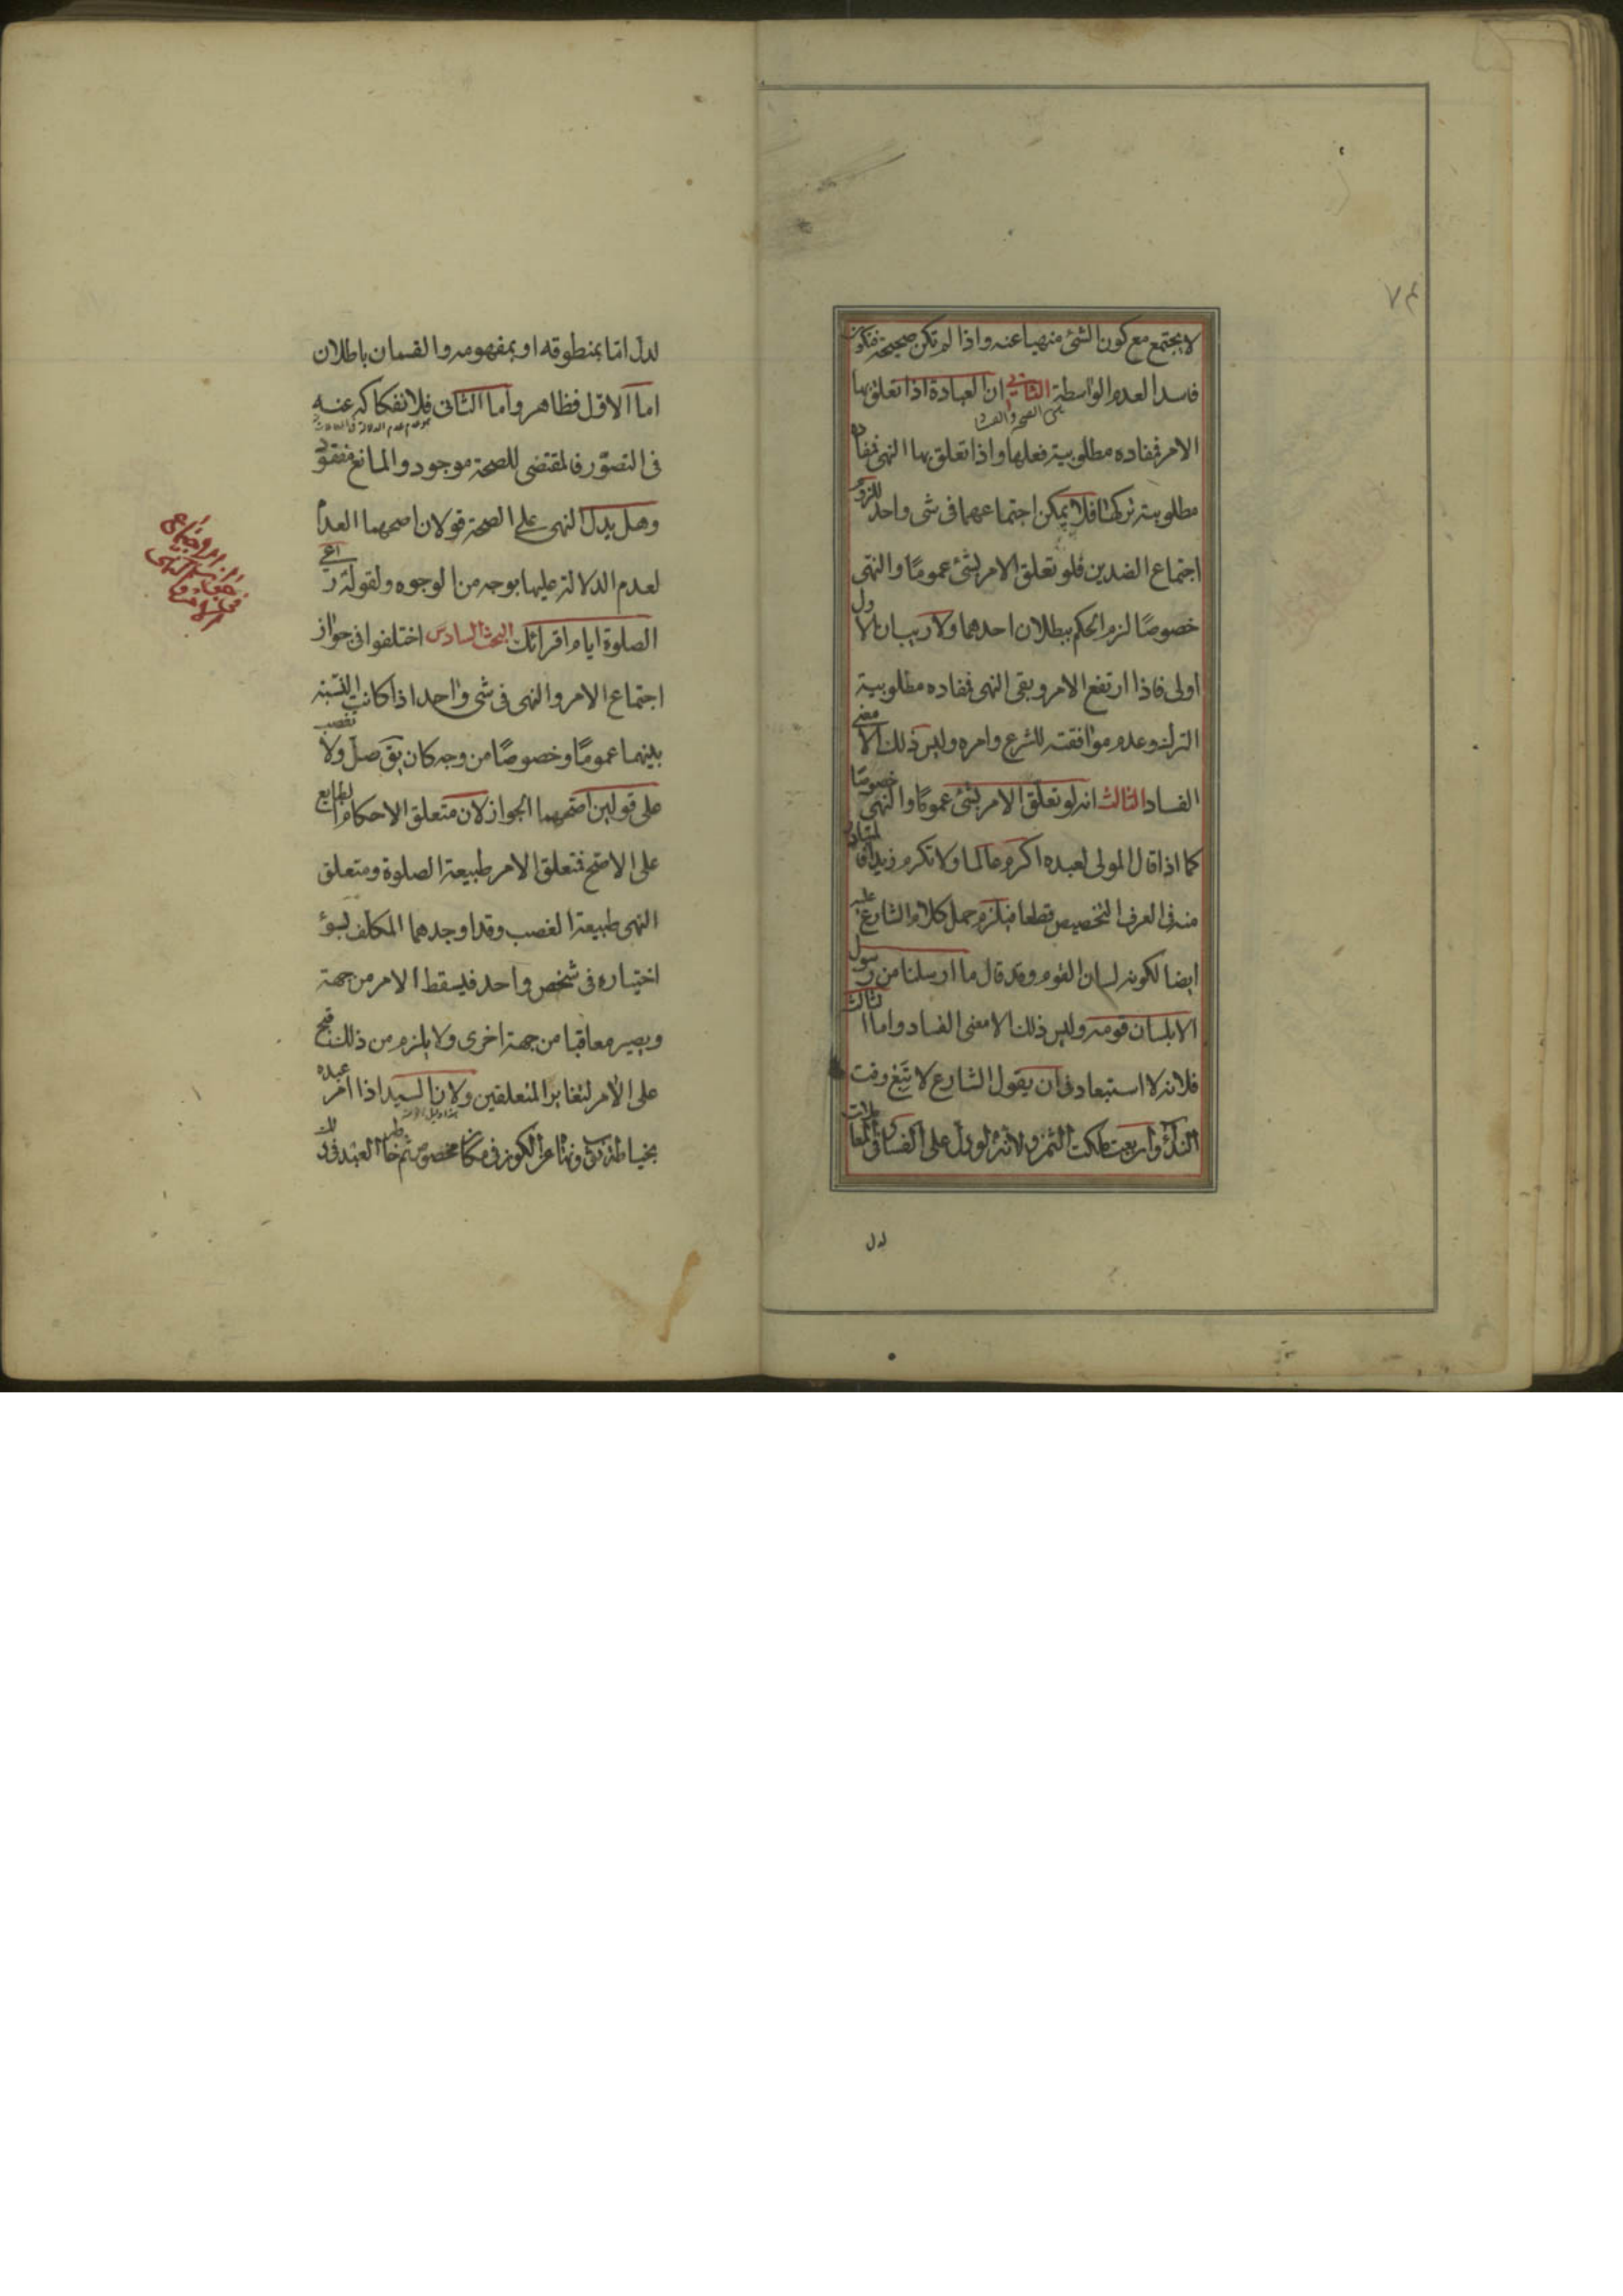 ٧٤
لا يجتمع مع كون الشئ منهيا عنه واذا لم تكن صحيحة فتكون
فاسدا لعدم الواسطة الثانى ان العبادة اذا تعلق بها
بين الصحة والفساد
الامر فمفاده مطلوبية فعلها واذا تعلق بها النهى فمفاده
مطلوبية تركها فلا يمكن اجتماعهما فى شئ واحد للزوم
اجتماع الضدين فلو تعلق الامر بشئ عموما والنهى
خصوصا لزم الحكم ببطلان احدهما ولا ريب ان الاول
اولى فاذا ارتفع الامر وبقى النهى فمفاده مطلوبية
الترك وعدم موافقته للشرع وامره وليس ذلك الا معنى
الفساد الثالث انه لو تعلق الامر بشئ عموما والنهى خصوصا
كما اذا قال المولى لعبده اكرم عالما ولا تكرم زيدا فالمتبادر
منه فى العرف التخصيص قطعا فيلزم حمل كلام الشارع عليه
ايضا لكونه لسان القوم وقد قال ما ارسلنا من رسول
الا بلسان قومه وليس ذلك الا معنى الفساد واما الثالث
فلانه لا استبعاد فى ان يقول الشارع لا تبع وقت
النداء وان بعت ملكت الثمن ولانه لو دل على الفساد فى المعاملات
لدل
لدل اما بمنطوقه او بمفهومه والقسمان باطلان
اما الاول فظاهر واما الثانى فلانفكاكه عنه
فى التصور فالمقتضى للصحة موجود والمانع مفقود
وهل يدل النهى على الصحة قولان اصحهما العدم
لعدم الدلالة عليها بوجه من الوجوه ولقوله دعى
الصلوة ايام اقرائك البحث السادس اختلفوا فى جواز
اجتماع الامر والنهى فى شئ واحد اذا كانت النسبة
بينهما عموما وخصوصا من وجه كان يق صل ولا تغصب
على قولين اصحهما الجواز لان متعلق الاحكام الطبايع
على الاصح فمتعلق الامر طبيعة الصلوة ومتعلق
النهى طبيعة الغصب وقد اوجدهما المكلف بسوء
اختياره فى شخص واحد فيسقط الامر من جهة
ويصير معاقبا من جهة اخرى ولا يلزم من ذلك قبح
على الامر لتغاير المتعلقين ولان السيد اذا امر عبده
بخياطة ثوب ونهاه عن الكون فى مكان مخصوص ثم خاط العبد فى ذلك